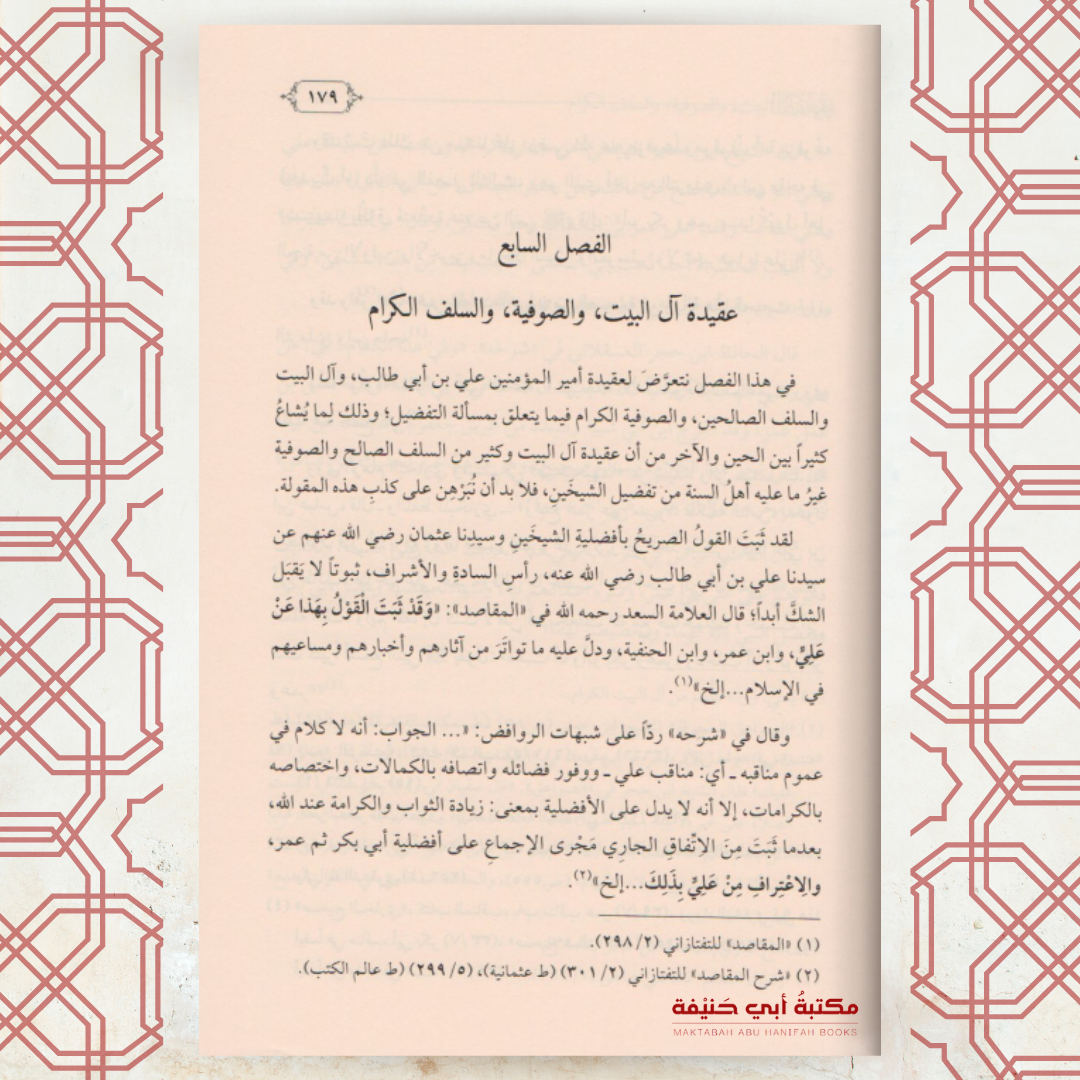 ١٧٩
الفصل السابع
عقيدة آل البيت، والصوفية، والسلف الكرام
في هذا الفصل نتعرَّضَ لعقيدة أمير المؤمنين علي بن أبي طالب، وآل البيت
والسلف الصالحين، والصوفية الكرام فيما يتعلق بمسألة التفضيل؛ وذلك لما يُشاعُ
كثيراً بين الحين والآخر من أن عقيدة آل البيت وكثير من السلف الصالح والصوفية
غيرُ ما عليه أهلُ السنة من تفضيل الشيخَينِ، فلا بد أن نُبَرْهِن على كذبِ هذه المقولة.
لقد ثَبَتَ القولُ الصريحُ بأفضليةِ الشيخَينِ وسيدِنا عثمان رضي الله عنهم عن
سيدنا علي بن أبي طالب رضي الله عنه، رأسِ السادةِ والأشراف، ثبوتاً لا يَقبَل
الشكَّ أبداً؛ قال العلامة السعد رحمه الله في «المقاصد»: «وَقَدْ ثَبَتَ الْقَوْلُ بِهَذا عَنْ
عَلِيٍّ، وابن عمر، وابن الحنفية، ودلَّ عليه ما تواتَرَ من آثارهم وأخبارهم ومساعيهم
في الإسلام...إلخ»(١).
وقال في «شرحه» ردّاً على شبهات الروافض: «... الجواب: أنه لا كلام في
عموم مناقبه ـ أي: مناقب علي ـ ووفور فضائله واتصافه بالكمالات، واختصاصه
بالكرامات، إلا أنه لا يدل على الأفضلية بمعنى: زيادة الثواب والكرامة عند الله،
بعدما ثَبَتَ مِنَ الاِتْفاقِ الجارِي مَجْرى الإجماعِ على أفضلية أبي بكر ثم عمر،
والاعْتِرافِ مِنْ عَلِيٍّ بِذَلِكَ...إلخ»(٢).
(١) «المقاصد» للتفتازاني (٢/ ٢٩٨).
(٢) «شرح المقاصد» للتفتازاني (٢/ ٣٠١) (ط عثمانية)، (٥/ ٢٩٩) (ط عالم الكتب).
مكتبةُ أبي حَنيْفة
MAKTABAH ABU HANIFAH BOOKS